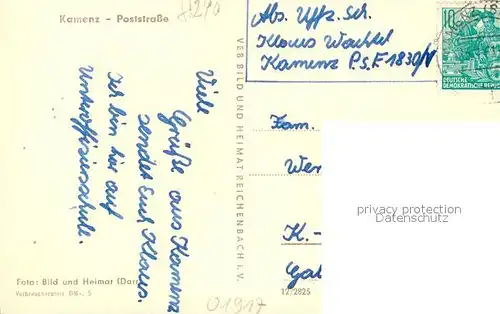 Kamenz – Poststraße
Abs. Uffz. Sch.
Klaus Wachtel
Kamenz P.S.F 1830/V
10
DEUTSCHE
DEMOKRATISCHE REPUBLIK
Viele
Grüße aus Kamenz
sendet Euch Klaus.
Ich bin hier auf
Unteroffizierschule.
VEB BILD UND HEIMAT REICHENBACH i. V.
Fam.
Wer
K.-
Gab
privacy protection
Datenschutz
Foto: Bild und Heimat (Darr
Verbraucherpreis DM -, 5
12/2825
01917